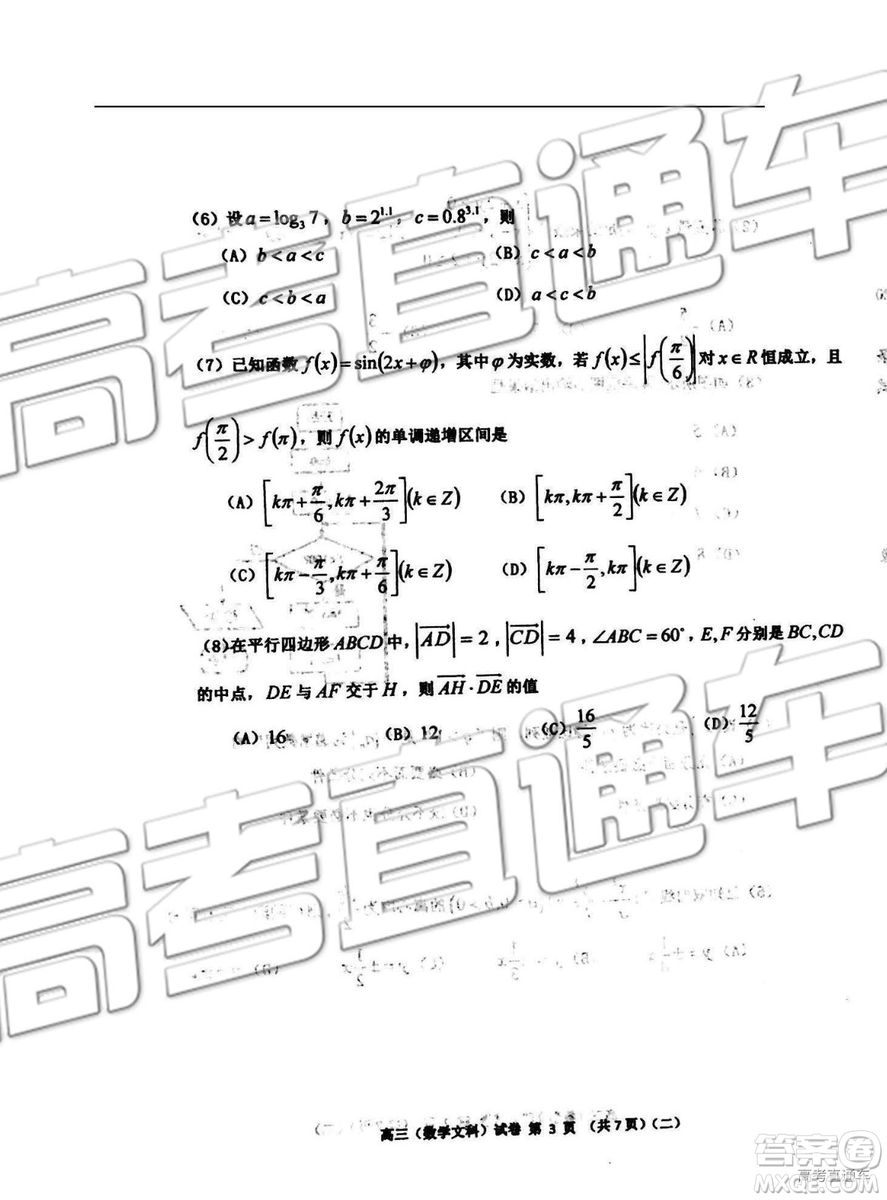 (6) 设 a = log₃ 7，b = 2^{1.1}，c = 0.8^{3.1}，则
(A) b < a < c (B) c < a < b
(C) c < b < a (D) a < c < b
(7) 已知函数 f(x) = sin(2x + φ)，其中 φ 为实数，若 f(x) ≤ |f(π/6)| 对 x ∈ R 恒成立，且
f(π/2) > f(π)，则 f(x) 的单调递增区间是
(A) [kπ + π/6, kπ + 2π/3](k ∈ Z) (B) [kπ, kπ + π/2](k ∈ Z)
(C) [kπ − π/3, kπ + π/6](k ∈ Z) (D) [kπ − π/2, kπ](k ∈ Z)
(8) 在平行四边形 ABCD 中，|AD| = 2，|CD| = 4，∠ABC = 60°，E, F 分别是 BC, CD
的中点，DE 与 AF 交于 H，则 AH · DE 的值
(A) 16 (B) 12 (C) 16/5 (D) 12/5
高三（数学文科）试卷 第 3 页 （共 7 页）（二）
高考直通车
高考直通车
高考直通车
答案圈
MXQE.COM